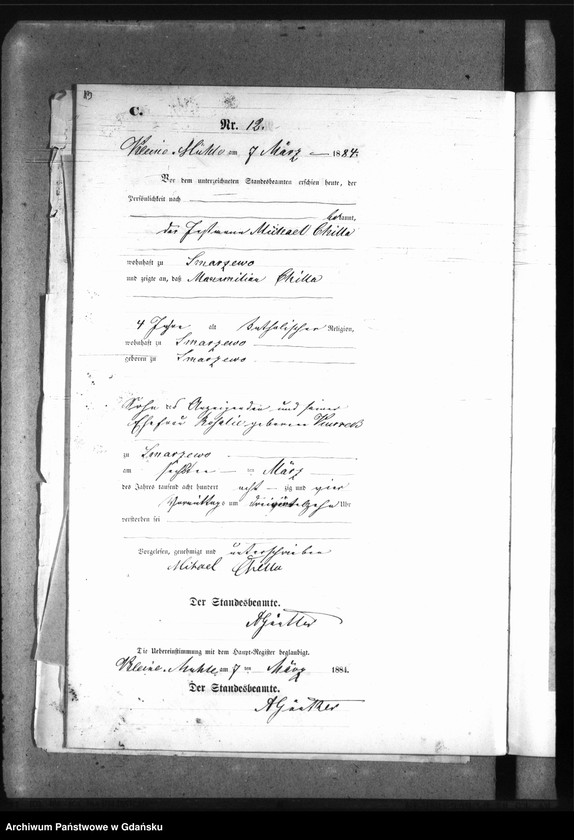 C.
Nr. 12.
Kleine Mühle am 7 März 1884.
Vor dem unterzeichneten Standesbeamten erschien heute, der
Persönlichkeit nach
kannt,
der Michael Chilla
wohnhaft zu Smarzewo
und zeigte an, daß Maximilian Chilla
4 Jahre alt katholischer Religion,
wohnhaft zu Smarzewo
geboren zu Smarzewo
Sohn des Anzeigenden und seiner
Ehefrau Rosalie geborenen
zu Smarzewo
am sechsten ten März
des Jahres tausend acht hundert acht zig und vier
Vormittags um Uhr
verstorben sei
Vorgelesen, genehmigt und unterschrieben
Mihael Chilla
Der Standesbeamte.
AGärtner
Die Uebereinstimmung mit dem Haupt-Register beglaubigt.
Kleine Mühle am 7 ten März 1884.
Der Standesbeamte.
AGärtner
Archiwum Państwowe w Gdańsku